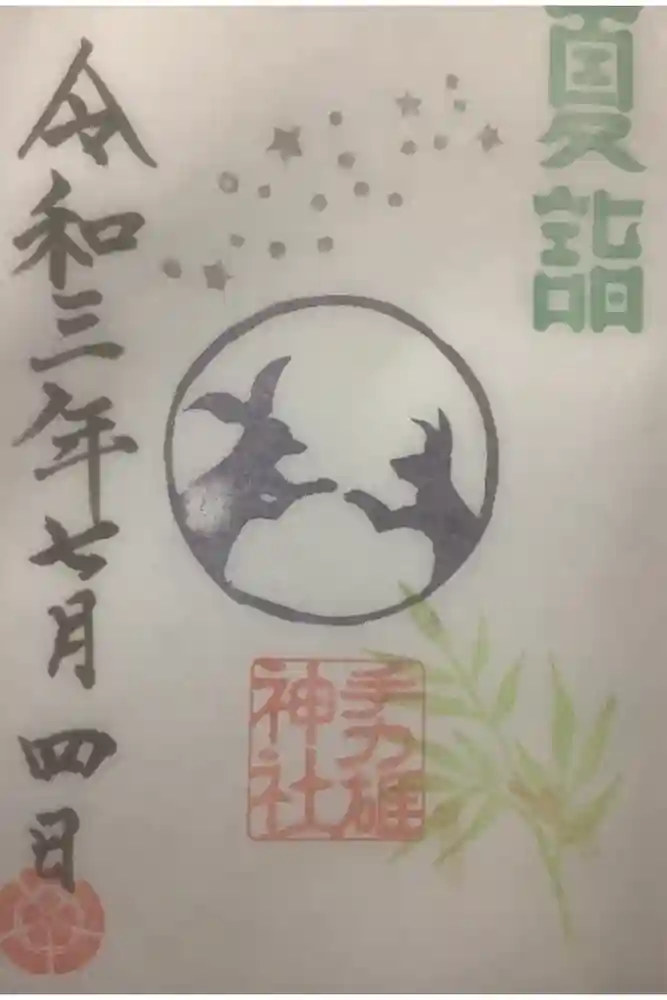 夏詣
手力雄
神社
令和三年七月四日